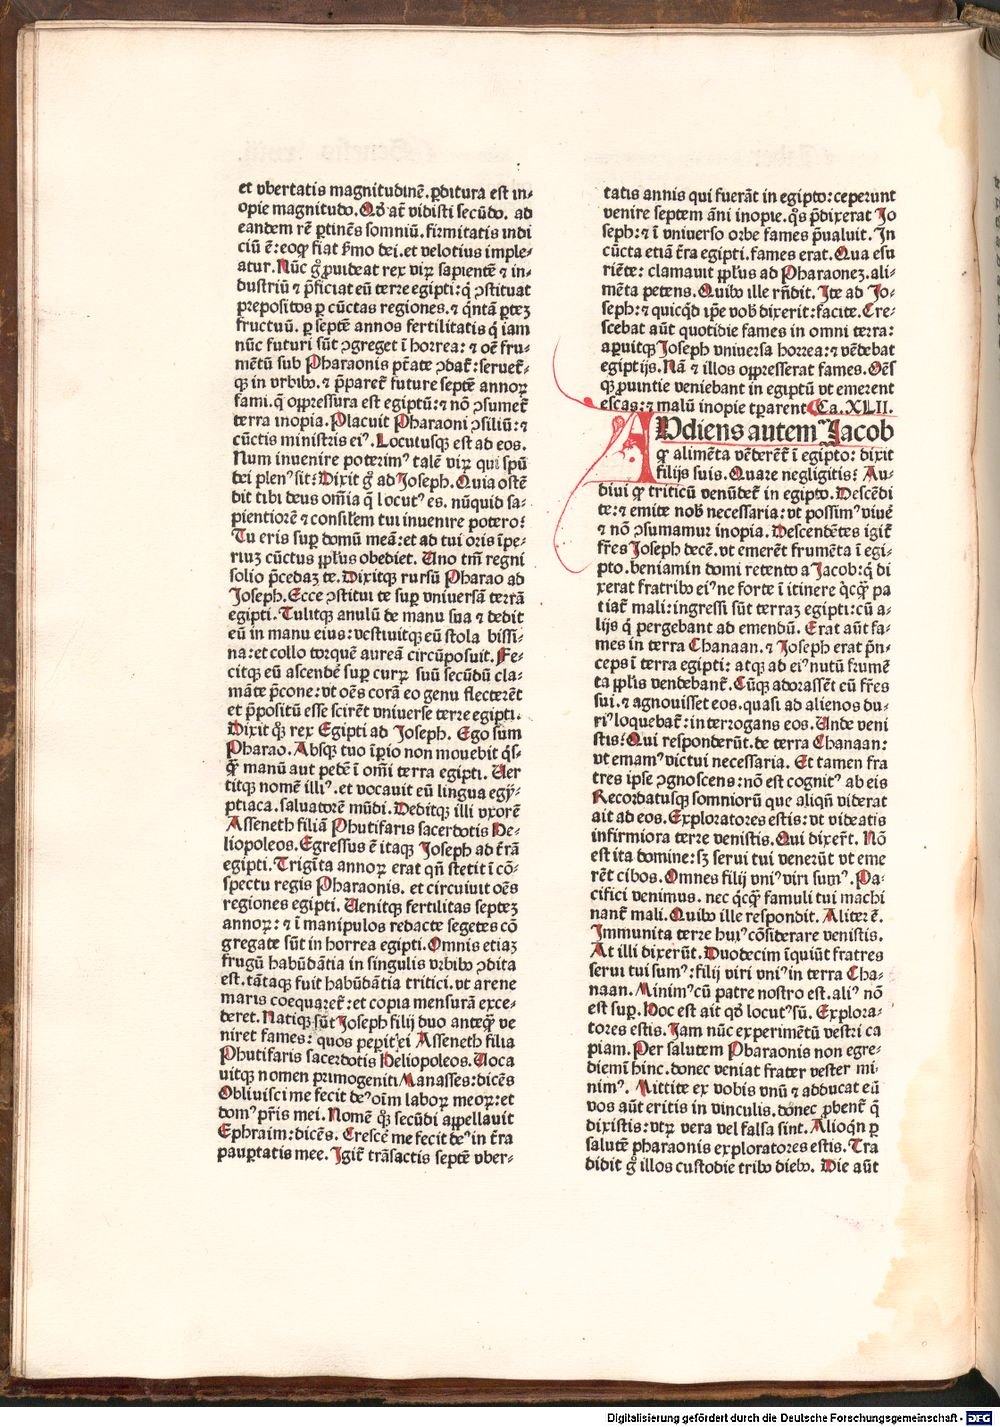 et vbertatis magnitudinē. ꝑditura est in-
opie magnitudo. Qd' aūt vidisti secūdo. ad
eandem rē ꝑtinēs somniū. firmitatis indi
ciū ē: eoqꝫ fiat ẜmo dei. et velotius imple-
atur. Nūc gͦ ꝓuideat rex viꝝ sapientē ⁊ in-
dustriū ⁊ p̄ficiat eū terre egipti: q̇ ꝯstituat
prepositos ꝑ cūctas regiones. ⁊ q̇ntā ꝑteꝫ
fructuū. ꝑ septē annos fertilitatis q̇ iam
nūc futuri sūt ꝯgreget ī horrea: ⁊ oē fru-
mētū sub Pharaonis ptāte ꝯdat᷑: seruet᷑-
qꝫ in vrbibꝰ. ⁊ p̄paret᷑ future septē annoꝝ
fami. q̄ oppressura est egiptū: ⁊ nō ꝯsumet᷑
terra inopia. Placuit Pharaoni ꝯsiliū: ⁊
cūctis ministris eiꝰ. Locutusqꝫ est ad eos.
Num inuenire poterimꝰ talē viꝝ qui spū
dei plenꝰ sit: Dixit gͦ ad Joseph. Quia ostē
dit tibi deus om̄ia q̄ locutꝰ es. nūquid sa-
pientiorē ⁊ consilem tui inuenire potero:
Tu eris suꝑ domū meā: et ad tui oris īpe-
riuꝫ cūctus ppl̄us obediet. Uno tm̄ regni
solio p̄cedaꝫ te. Dixitqꝫ rursū Pharao ad
Joseph. Ecce ꝯstitui te suꝑ vniuersā terrā
egipti. Tulitqꝫ anulū de manu sua ⁊ dedit
eū in manu eius: vestiuitqꝫ eū stola bissi-
na: et collo torquē aureā circūposuit. Fe-
citqꝫ eū ascendē suꝑ curꝝ suū secūdū cla-
māte p̄cone: vt oēs corā eo genu flecterēt
et p̄positū esse scirēt vniuerse terre egipti.
Dixit qͦꝫ rex Egipti ad Joseph. Ego sum
Pharao. Absqꝫ tuo īꝑio non mouebit q̇s-
qͣꝫ manū aut pedē ī om̄i terra egipti. Uer
titqꝫ nomē illiꝰ. et vocauit eū lingua egy-
ptiaca. saluatorē mūdi. Deditqꝫ illi vxorē
Asseneth filiā Phutifaris sacerdotis He-
liopoleos. Egressus ē itaqꝫ Joseph ad t̄rā
egipti. Trigīta annoꝝ erat qn̄ stetit ī cō-
spectu regis Pharaonis. et circuiuit oēs
regiones egipti. Uenitqꝫ fertilitas septeꝫ
annoꝝ: ⁊ ī manipulos redacte segetes cō
gregate sūt in horrea egipti. Omnis etiaꝫ
frugū habūdātia in singulis vrbibꝰ ꝯdita
est. tātaqꝫ fuit habūdātia tritici. vt arene
maris coequaret᷑: et copia mensurā exce-
deret. Natiqꝫ sūt Joseph filij duo anteqͣꝫ ve
niret fames: quos peꝑit ei Asseneth filia
Phutifaris sacerdotis Heliopoleos. Uoca
uitqꝫ nomen primogeniti Manasses: dicēs
Obliuisci me fecit deꝰ oīm laboꝝ meoꝝ: et
domꝰ pr̄is mei. Nomē qͦꝫ secūdi appellauit
Ephraim: dicēs. Crescē me fecit deꝰ in t̄ra
pauꝑtatis mee. Igit᷑ trāsactis septē vber-
tatis annis qui fuerāt in egipto: ceperunt
venire septem āni inopie. q̄s p̄dixerat Jo
seph: ⁊ ī vniuerso orbe fames p̄ualuit. In
cūcta etiā t̄ra egipti. fames erat. Qua esu
riēte: clamauit ppl̄us ad Pharaoneꝫ. ali-
mēta petens. Quibꝰ ille rn̄dit. Ite ad Jo-
seph: ⁊ quicqͥd ip̄e vob̄ dixerit: facite. Cre-
scebat aūt quotidie fames in omni terra:
apuitqꝫ Joseph vniuersa horrea: ⁊ vēdebat
egiptijs. Nā ⁊ illos oppresserat fames. Oēs
qꝫ ꝓuintie veniebant in egiptū vt emerent
escas: ⁊ malū inopie tꝑarent Ca. XLII.
AUdiens autem Jacob
qͥ alimēta vēderēt᷑ ī egipto: dixit
filijs suis. Quare negligitis: Au-
diui qͥ triticū venūdet᷑ in egipto. Descēdi
te: ⁊ emite nob̄ necessaria: vt possimꝰ viuē
⁊ nō ꝯsumamur inopia. Descendētes igit᷑
fr̄es Joseph decē. vt emerēt frumēta ī egi-
pto. beniamin domi retento a Jacob: q̇ di
xerat fratribꝰ eiꝰ ne forte ī itinere q̇cqͣꝫ pa
tiat᷑ mali: ingressi sūt terraꝫ egipti: cū a-
lijs q̇ pergebant ad emendū. Erat aūt fa-
mes in terra Chanaan. ⁊ Joseph erat p̄n-
ceps ī terra egipti: atqꝫ ad eiꝰ nutū frumē
ta ppl̄is vendebant᷑. Cūqꝫ adorassēt eū fr̄es
sui. ⁊ agnouisset eos. quasi ad alienos du-
riꝰ loquebat᷑: interrogans eos. Unde veni
stis: Qui responderūt. de terra Chanaan:
vt emamꝰ victui necessaria. Et tamen fra
tres ipse ꝯgnoscens: nō est cognitꝰ ab eis
Recordatusqꝫ somniorū que aliqn̄ viderat
ait ad eos. Exploratores estis: vt videatis
infirmiora terre venistis. Qui dixer̄t. Nō
est ita domine: sꝫ serui tui venerūt vt eme
rēt cibos. Omnes filij vniꝰ viri sumꝰ. Pa-
cifici venimus. nec q̇cqͣꝫ famuli tui machi
nant᷑ mali. Quibꝰ ille respondit. Aliter ē.
Immunita terre huiꝰ cōsiderare venistis.
At illi dixerūt. Duodecim īquiūt fratres
serui tui sumꝰ: filij viri vniꝰ in terra Cha-
naan. Minimꝰ cū patre nostro est. aliꝰ nō
est suꝑ. Hoc est ait qd' locutꝰ sū. Explora-
tores estis. Jam nūc experimētū vestri ca
piam. Per salutem Pharaonis non egre-
diemī hinc. donec veniat frater vester mi-
nimꝰ. Mittite ex vobis vnū ⁊ adducat eū
vos aūt eritis in vinculis. donec ꝓbent᷑ q̄
dixistis: vtꝝ vera vel falsa sint. Alioqn̄ ꝑ
salutē pharaonis exploratores estis. Tra
didit gͦ illos custodie tribꝰ diebꝰ. Die aūt
Digitalisierung gefördert durch die Deutsche Forschungsgemeinschaft - DFG